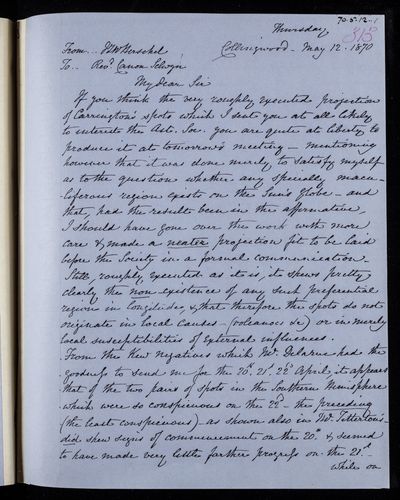 70-5-12-1
Thursday
315
From .. JFW Herschel Collingwood - May 12. 1870
To .. Revd. Canon Selwyn
My dear Sir
If you think the very roughly executed projection
of Carrington's spots which I sent you at all likely
to interest the Ast. Soc. you are quite at liberty to
produce it at tomorrow's meeting - mentioning
however that it was done merely to satisfy myself
as to the question whether any specially macu-
-liferous region exists on the Sun's globe - and
that, had the result been in the affirmative,
I should have gone over the work with more
care & made a neater projection fit to be laid
before the Society in a formal communication.
Still, roughly executed as it is, it shews pretty
clearly the non-existence of any such preferential
region in longitude, & that therefore the spots do not
originate in local causes - (volcanoes &c) or in merely
local susceptibilities of external influences.
From the Kew negatives which Mr. Delarue had the
goodness to send me for the 20. 21. 22d April, it appears
that of the two pairs of spots in the Southern Hemisphere
which were so conspicuous on the 22d - the preceding
(the least conspicuous) as shown also in Mr. Titterton's
did shew signs of commencement on the 20th & seemed
to have made very little farther progress on the 21st.
While on